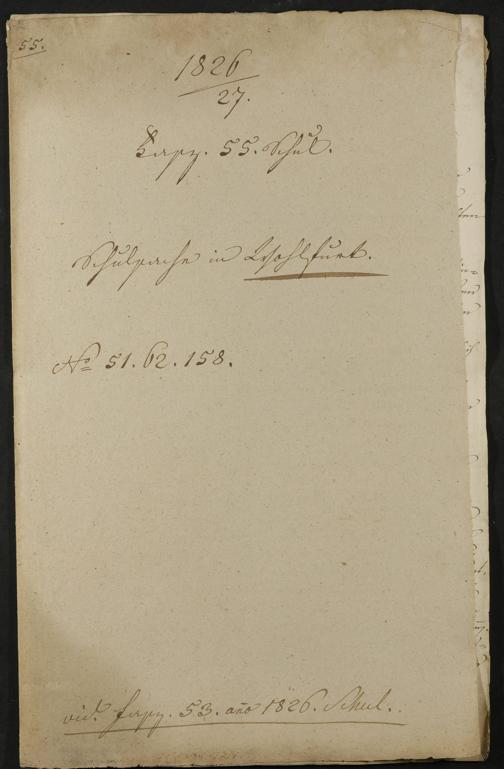 55.
1826
27.
Fasz. 55. Schul.
Schulsache in Wohlfurt.
No 51. 62. 158.
vid. fasz. 53. año 1826. Schul.